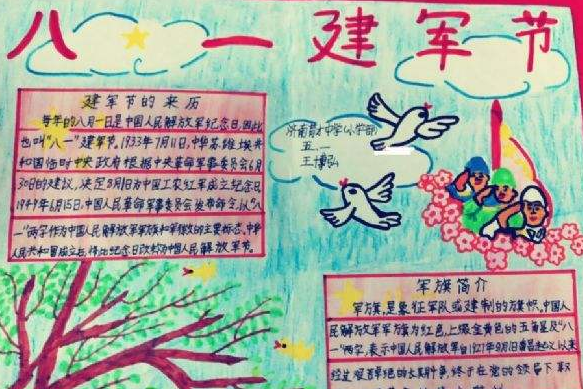 八一建军节
建军节的来历
每年的八月一日是中国人民解放军纪念日,因此
也叫"八一"建军节。1933年7月11日,中华苏维埃共
和国临时中央政府根据中央革命军事委员会6月
30日的建议,决定8月1日为中国工农红军成立纪念日。
1949年6月15日,中国人民革命军事委员会发布命令,以"八
一"两字作为中国人民解放军军旗和军徽的主要标志。中华
人民共和国成立后,将此纪念日改称为中国人民解放军建军节。
济南育才中学(小学部)
五.一
王博弘
军旗简介
军旗,是象征军队或建制的旗帜。中国人
民解放军军旗为红色,上缀金黄色的五角星及"八
一"两字,表示中国人民解放军自1927年8月1日南昌起义以来
经过艰苦卓绝的长期斗争,终于在党的领导下取